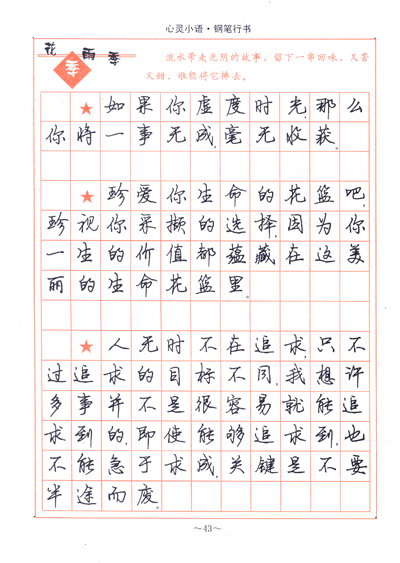 心灵小语·钢笔行书
花雨季
季
流水带走光阴的故事，留下一串回味，又苦
又甜，谁能将它拂去。
★如果你虚度时光，那么
你将一事无成，毫无收获。
★珍爱你生命的花篮吧，
珍视你采撷的选择，因为你
一生的价值都蕴藏在这美
丽的生命花篮里。
★人无时不在追求，只不
过追求的目标不同，我想许
多事并不是很容易就能追
求到的，即使能够追求到，也
不能急于求成，关键是不要
半途而废。
～43～